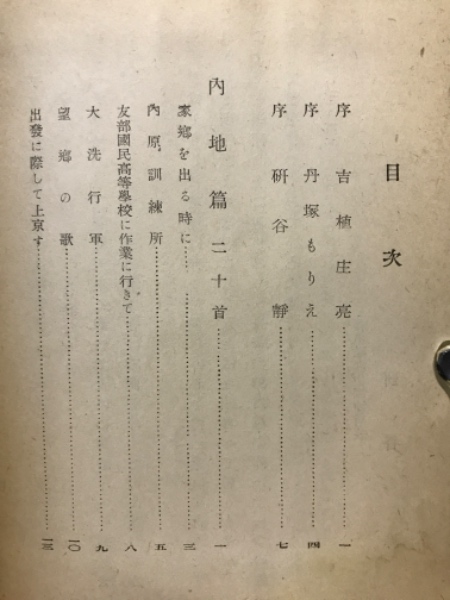 目次
序 吉植庄亮……一
序 丹塚もりえ……四
序 研谷靜……七
內地篇 二十首……一
家鄕を出る時に……三
內原訓練所……五
友部國民高等學校に作業に行きて……八
大洗行軍……九
望鄕の歌……一〇
出發に際して上京す……一三